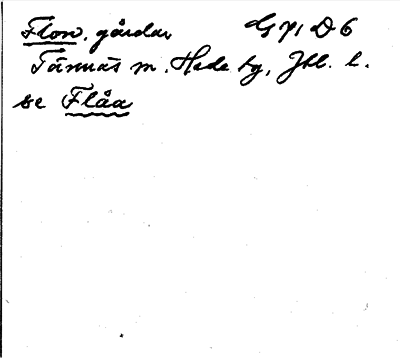 Flon, gårdar G 71 D 6
Tännäs sn, Hede tg, Jtl. l.
se Flåa